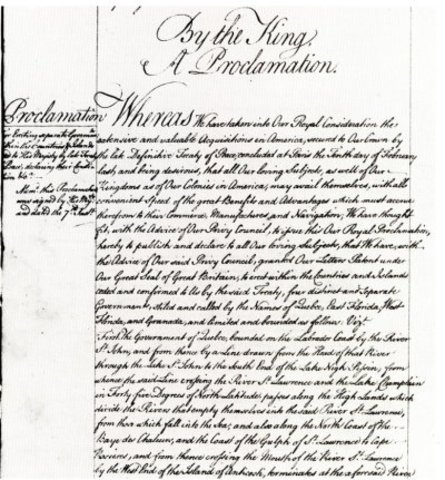 By the King.
A Proclamation.
Proclamation
for Erecting separate Governmen
to His Majesty by late Treaty
Mem: this Proclamation
was signed by His Maj:
and dated the 7th Inst.
Whereas We have taken into Our Royal Consideration the
extensive and valuable Acquisitions in America, secured to Our Crown by
the late Definitive Treaty of Peace, concluded at Paris the Tenth day of February
last, and being desirous, that all Our loving Subjects, as well of Our
Kingdoms as of Our Colonies in America, may avail themselves, with all
convenient Speed, of the great Benefits and Advantages which must accrue
therefrom to their Commerce, Manufactures, and Navigation; We have thought
fit, with the Advice of Our Privy Council, to issue this Our Royal Proclamation,
hereby to publish and declare to all Our loving Subjects, that We have, with
the Advice of Our said Privy Council, granted Our Letters Patent under
Our Great Seal of Great Britain, to erect within the Countries and Islands
ceded and confirmed to Us by the said Treaty, four distinct and separate
Governments, stiled and called by the Names of Quebec, East Florida, West
Florida, and Granada, and limited and bounded as follow: Vizt.
First, the Government of Quebec, bounded on the Labrador Coast by the River
St. John, and from thence by a Line drawn from the Head of that River
through the Lake St. John to the South End of the Lake Nigh Pissin, from
whence the said Line crossing the River St. Lawrence and the Lake Champlain
in Forty five Degrees of North Latitude, passes along the High Lands which
divide the Rivers that empty themselves into the said River St. Lawrence,
from those which fall into the Sea; and also along the North Coast of the
Baye des Chaleurs, and the Coast of the Gulph of St. Lawrence to Cape
Rosieres, and from thence crossing the Mouth of the River St. Lawrence
by the West End of the Island of Anticosti, terminates at the aforesaid River